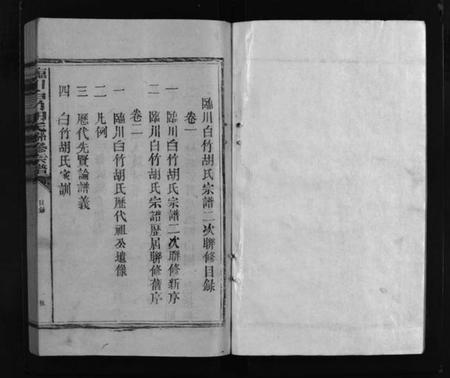 臨川白竹胡氏宗譜二次聯修目錄
卷一
一 臨川白竹胡氏宗譜二次聯修新序
二 臨川白竹胡氏宗譜歷屆聯修舊序
卷二
一 臨川白竹胡氏歷代祖公遺像
二 凡例
三 歷代先賢論譜義
四 白竹胡氏家訓
臨川白竹胡氏聯修宗譜
目錄